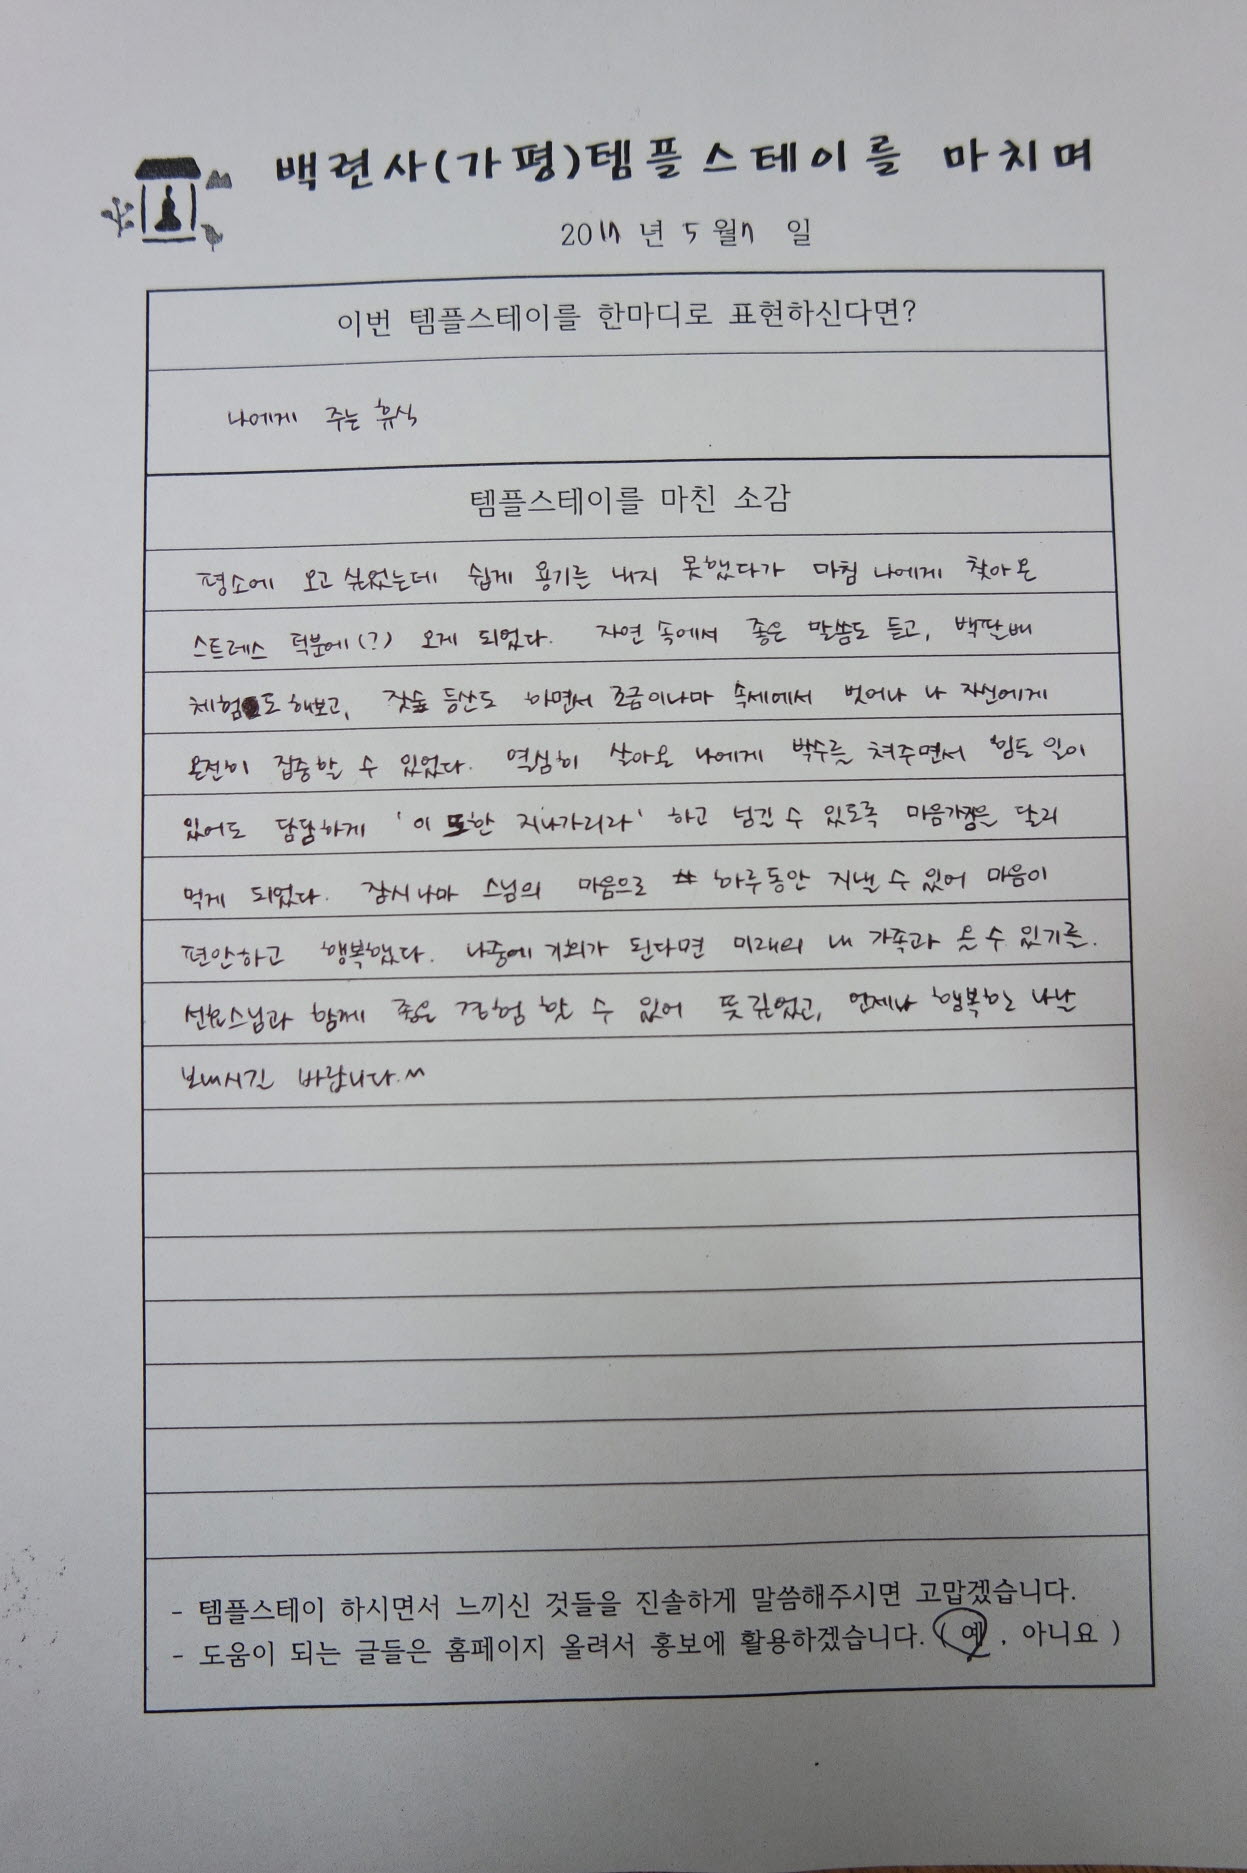 백련사(가평)템플스테이를 마치며
2017 년 5 월 7 일
이번 템플스테이를 한마디로 표현하신다면?
나에게 주는 휴식
템플스테이를 마친 소감
평소에 오고 싶었는데 쉽게 용기를 내지 못했다가 마침 나에게 찾아온
스트레스 덕분에(?) 오게 되었다. 자연 속에서 좋은 말씀도 듣고, 백팔배
체험도 해보고, 잣숲 등산도 하면서 조금이나마 속세에서 벗어나 나 자신에게
온전히 집중할 수 있었다. 열심히 살아온 나에게 박수를 쳐주면서 힘든 일이
있어도 담담하게 '이 또한 지나가리라' 하고 넘길 수 있도록 마음가짐을 달리
먹게 되었다. 잠시나마 스님의 마음으로 하루동안 지낼 수 있어 마음이
편안하고 행복했다. 나중에 기회가 된다면 미래의 내 가족과 올 수 있기를.
스님과 함께 좋은 경험 할 수 있어 뜻깊었고, 언제나 행복한 나날
보내시길 바랍니다.^^
- 템플스테이 하시면서 느끼신 것들을 진솔하게 말씀해주시면 고맙겠습니다.
- 도움이 되는 글들은 홈페이지 올려서 홍보에 활용하겠습니다. ( 예 , 아니요 )